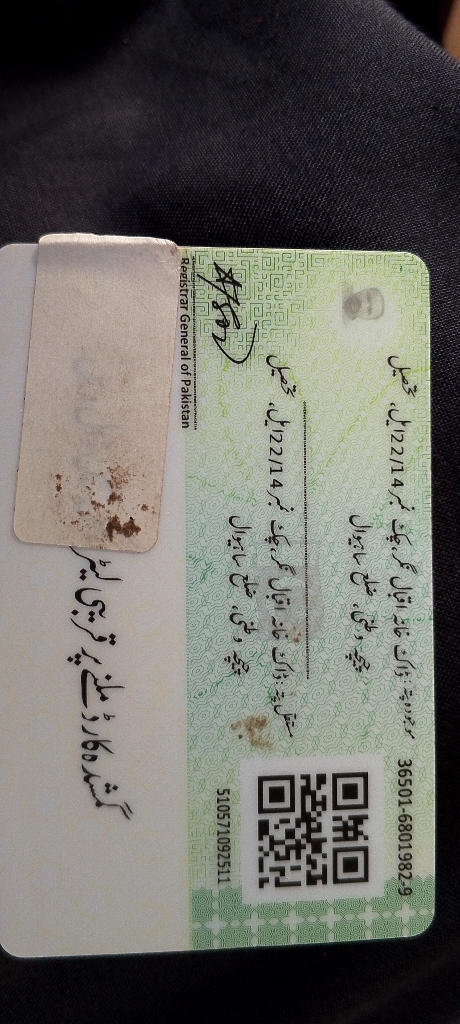 36501-6801982-9
موجودہ پتہ: ڈاک خانہ اقبال نگر، چک نمبر 22/14ایل، تحصیل
چیچہ وطنی، ضلع ساہیوال
مستقل پتہ: ڈاک خانہ اقبال نگر، چک نمبر 22/14ایل، تحصیل
چیچہ وطنی، ضلع ساہیوال
510571092511
Registrar General of Pakistan
گمشدہ کارڈ ملنے پر قریبی لیٹر